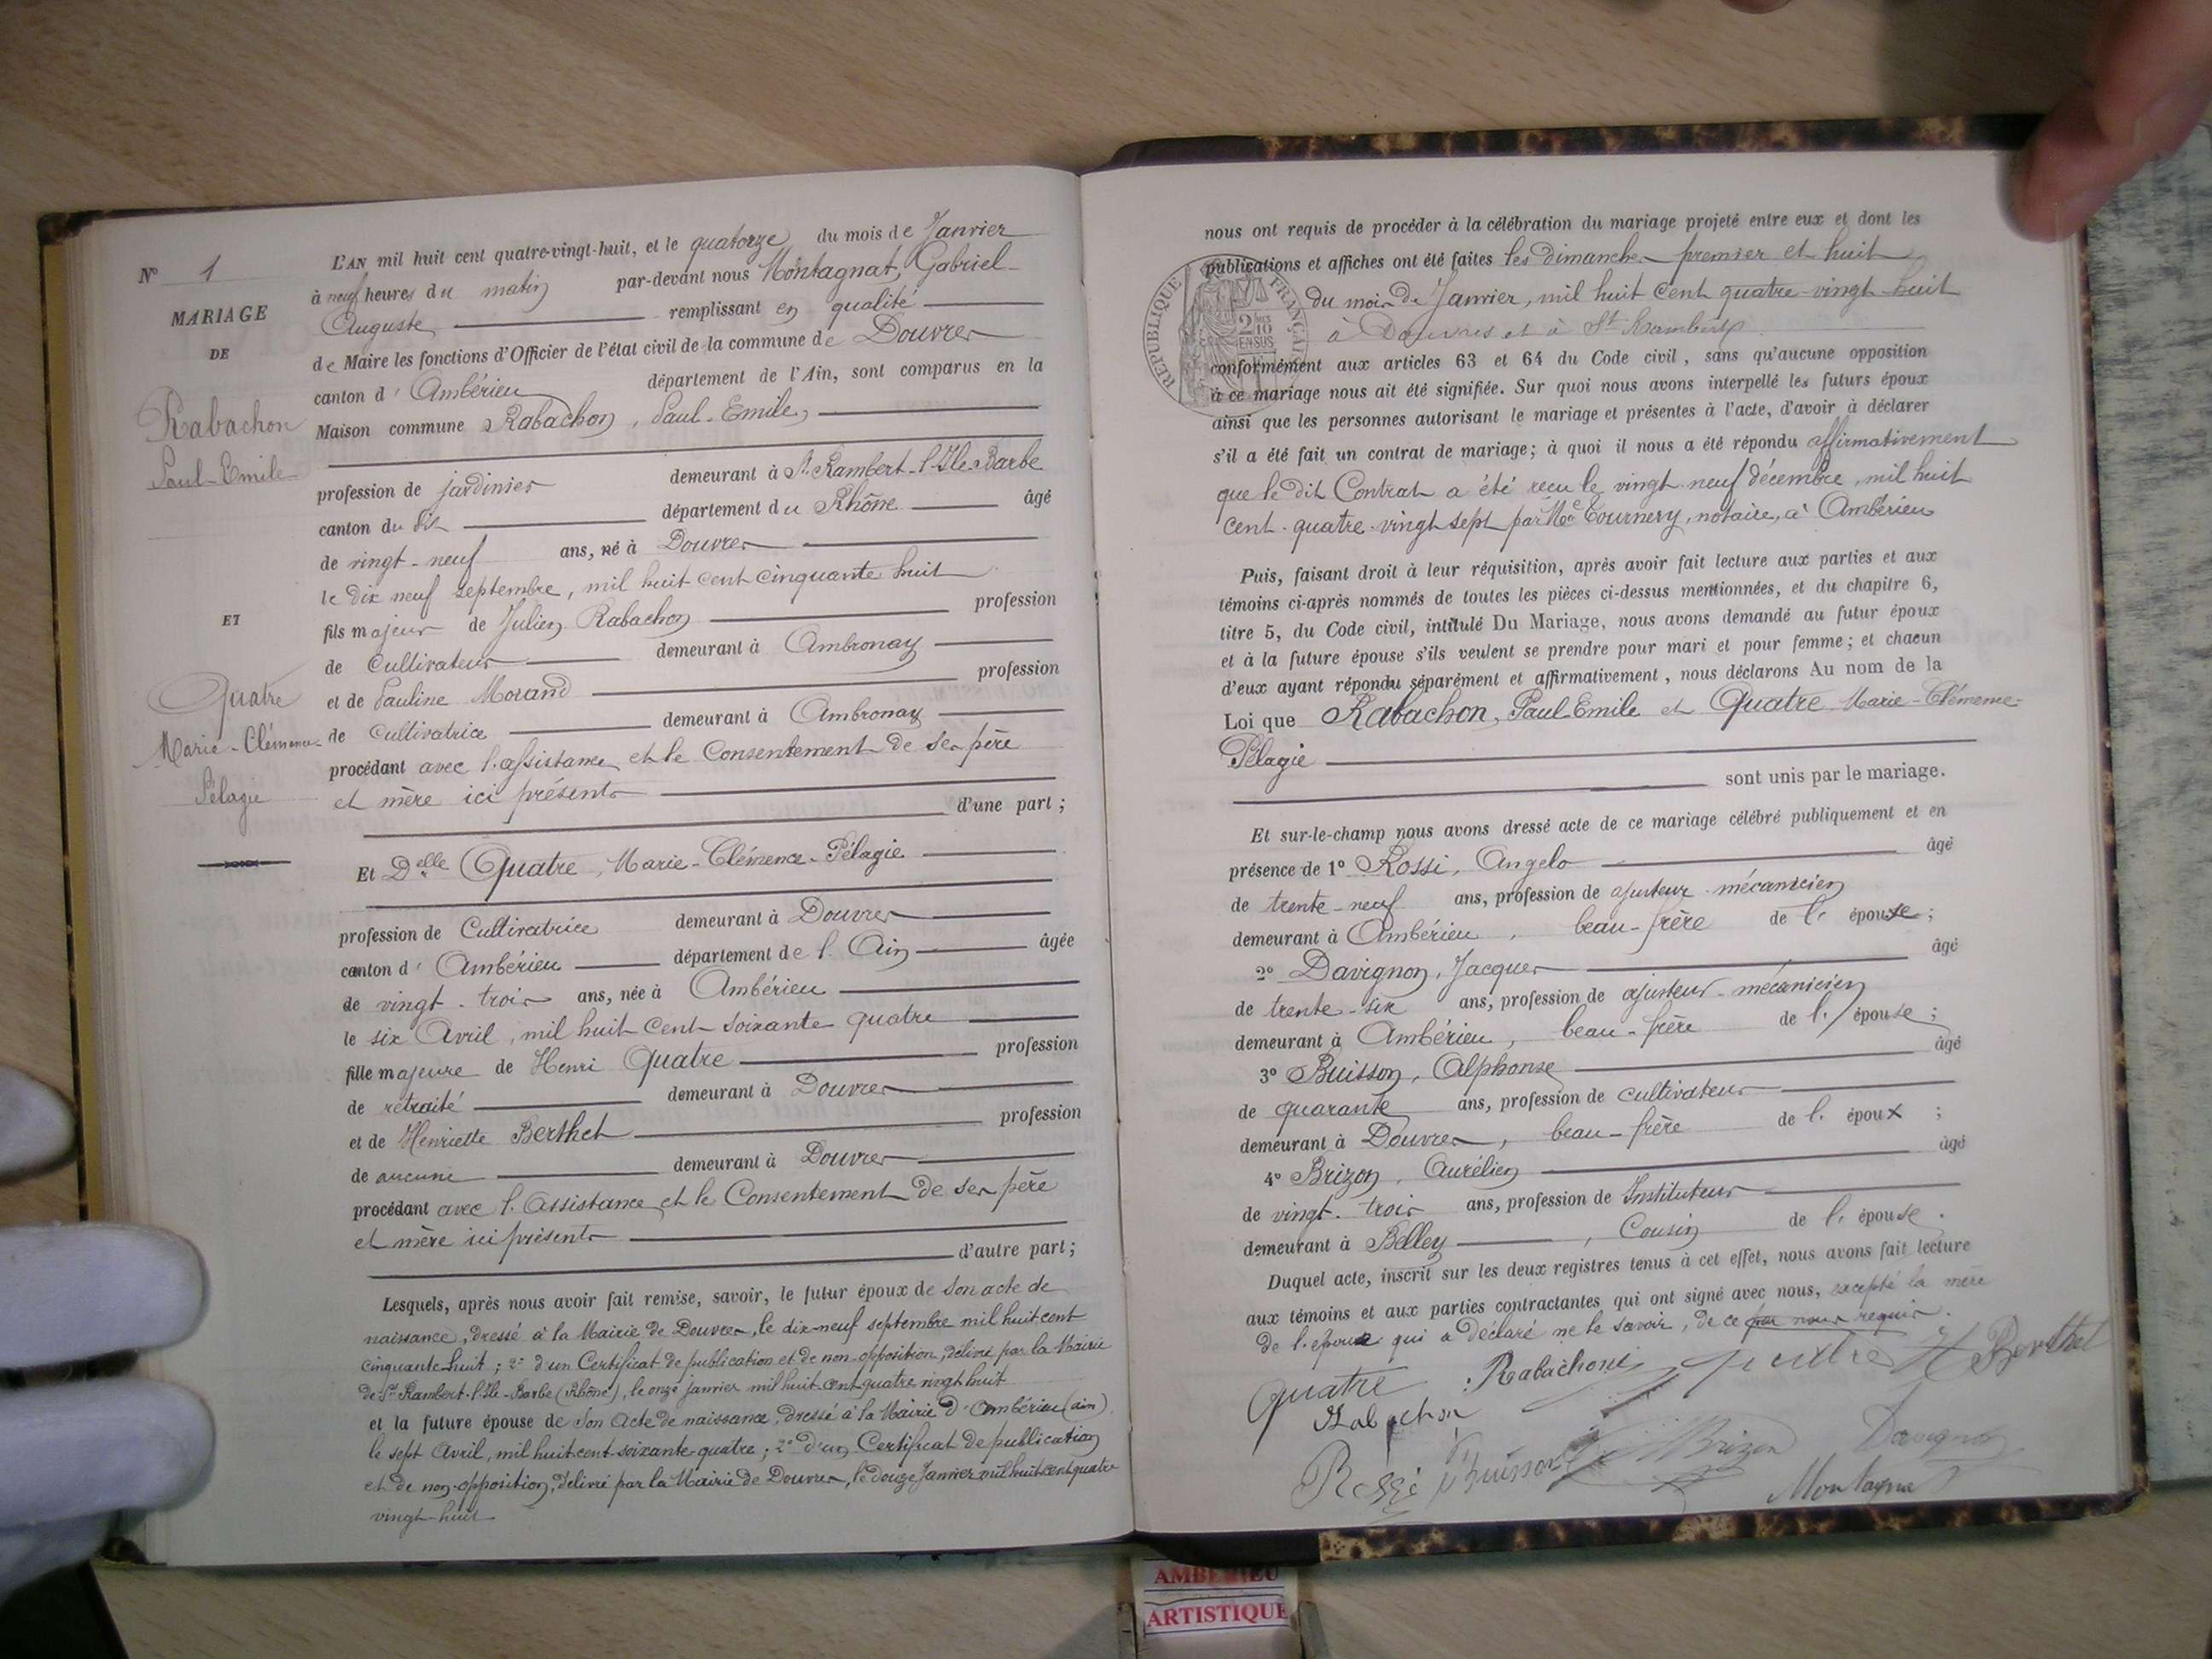 N° 1
MARIAGE
DE
Rabachon
Paul-Emile
ET
Quatre
Marie-Clémence-
Pélagie
L'AN mil huit cent quatre-vingt-huit, et le quatorze du mois de Janvier
à neuf heures du matin par-devant nous Montagnat, Gabriel-
Auguste remplissant en qualité
de Maire les fonctions d'Officier de l'état civil de la commune de Douvres
canton d' Ambérieu département de l'Ain, sont comparus en la
Maison commune Rabachon, Paul-Emile,
profession de jardinier demeurant à St Rambert-l'Ile-Barbe
canton du dit département du Rhône âgé
de vingt-neuf ans, né à Douvres
le dix neuf septembre, mil huit cent cinquante huit
fils majeur de Julien Rabachon profession
de Cultivateur demeurant à Ambronay
et de Pauline Morand profession
de Cultivatrice demeurant à Ambronay
procédant avec l'assistance et le Consentement de ses père
et mère ici présents
d'une part ;
Et Delle Quatre, Marie-Clémence-Pélagie
profession de Cultivatrice demeurant à Douvres
canton d' Ambérieu département de l'Ain âgée
de vingt-trois ans, née à Ambérieu
le six Avril, mil huit cent soixante quatre
fille majeure de Henri Quatre profession
de retraité demeurant à Douvres
et de Henriette Berthet profession
de aucune demeurant à Douvres
procédant avec l'assistance et le Consentement de ses père
et mère ici présents
d'autre part ;
Lesquels, après nous avoir fait remise, savoir, le futur époux de son acte de
naissance, dressé à la Mairie de Douvres, le dix-neuf septembre mil huit cent
cinquante huit ; 2° d'un Certificat de publication et de non-opposition, délivré par la Mairie
de St Rambert-l'Ile-Barbe (Rhône), le onze janvier mil huit cent quatre vingt huit
et la future épouse de son acte de naissance, dressé à la Mairie d'Ambérieu (ain)
le sept Avril, mil huit cent soixante-quatre ; 2° d'un Certificat de publication
et de non-opposition, délivré par la Mairie de Douvres, le douze Janvier mil huit cent quatre
vingt-huit
nous ont requis de procéder à la célébration du mariage projeté entre eux et dont les
publications et affiches ont été faites les dimanches premier et huit
du mois de Janvier, mil huit cent quatre-vingt-huit
à Douvres et à St Rambert
RÉPUBLIQUE FRANÇAISE
2/10
EN SUS
conformément aux articles 63 et 64 du Code civil, sans qu'aucune opposition
à ce mariage nous ait été signifiée. Sur quoi nous avons interpellé les futurs époux
ainsi que les personnes autorisant le mariage et présentes à l'acte, d'avoir à déclarer
s'il a été fait un contrat de mariage; à quoi il nous a été répondu affirmativement
que le dit Contrat a été reçu le vingt-neuf décembre, mil huit
cent-quatre-vingt sept par Me Tournery, notaire, à Ambérieu
Puis, faisant droit à leur réquisition, après avoir fait lecture aux parties et aux
témoins ci-après nommés de toutes les pièces ci-dessus mentionnées, et du chapitre 6,
titre 5, du Code civil, intitulé Du Mariage, nous avons demandé au futur époux
et à la future épouse s'ils veulent se prendre pour mari et pour femme ; et chacun
d'eux ayant répondu séparément et affirmativement, nous déclarons Au nom de la
Loi que Rabachon, Paul Emile et Quatre Marie-Clémence-
Pélagie
sont unis par le mariage.
Et sur-le-champ nous avons dressé acte de ce mariage célébré publiquement et en
présence de 1° Rossi, Angelo âgé
de trente-neuf ans, profession de ajusteur-mécanicien
demeurant à Ambérieu, beau-frère de l'épouse ;
2° Davignon, Jacques âgé
de trente-six ans, profession de ajusteur-mécanicien
demeurant à Ambérieu, beau-frère de l'épouse ;
3° Buisson, Alphonse âgé
de quarante ans, profession de cultivateur
demeurant à Douvres, beau-frère de l'époux ;
4° Brizon, Aurélien âgé
de vingt-trois ans, profession de Instituteur
demeurant à Belley, Cousin de l'épouse.
Duquel acte, inscrit sur les deux registres tenus à cet effet, nous avons fait lecture
aux témoins et aux parties contractantes qui ont signé avec nous, excepté la mère
de l'époux qui a déclaré ne le savoir, de ce par nous requis.
Quatre Rabachon Quatre H Berthet
Rabachon
Rossi Buisson Brizon Davignon
Montagnat
AMBERIEU
ARTISTIQUE